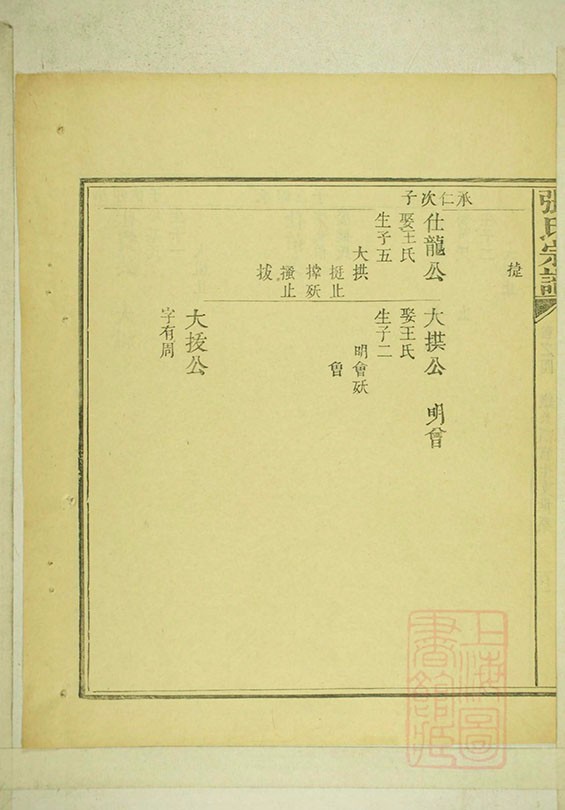 張氏宗譜
捷
承仁次子
仕龍公
娶王氏
生子五
大拱
挺止
撑殀
搔止
拔
大拱公 明曾
娶王氏
生子二
明會殀
魯
大拔公
字有周
上海圖書館藏